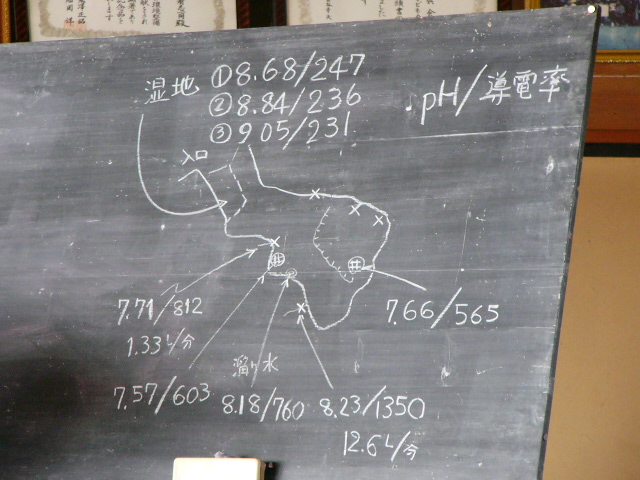 湿地 ①8.68/247
②8.84/236
③9.05/231
・pH/導電率
入口
井
井
7.71/812
1.33 L/分
7.66/565
7.57/603
溜り水
8.18/760
8.23/1350
12.6 L/分